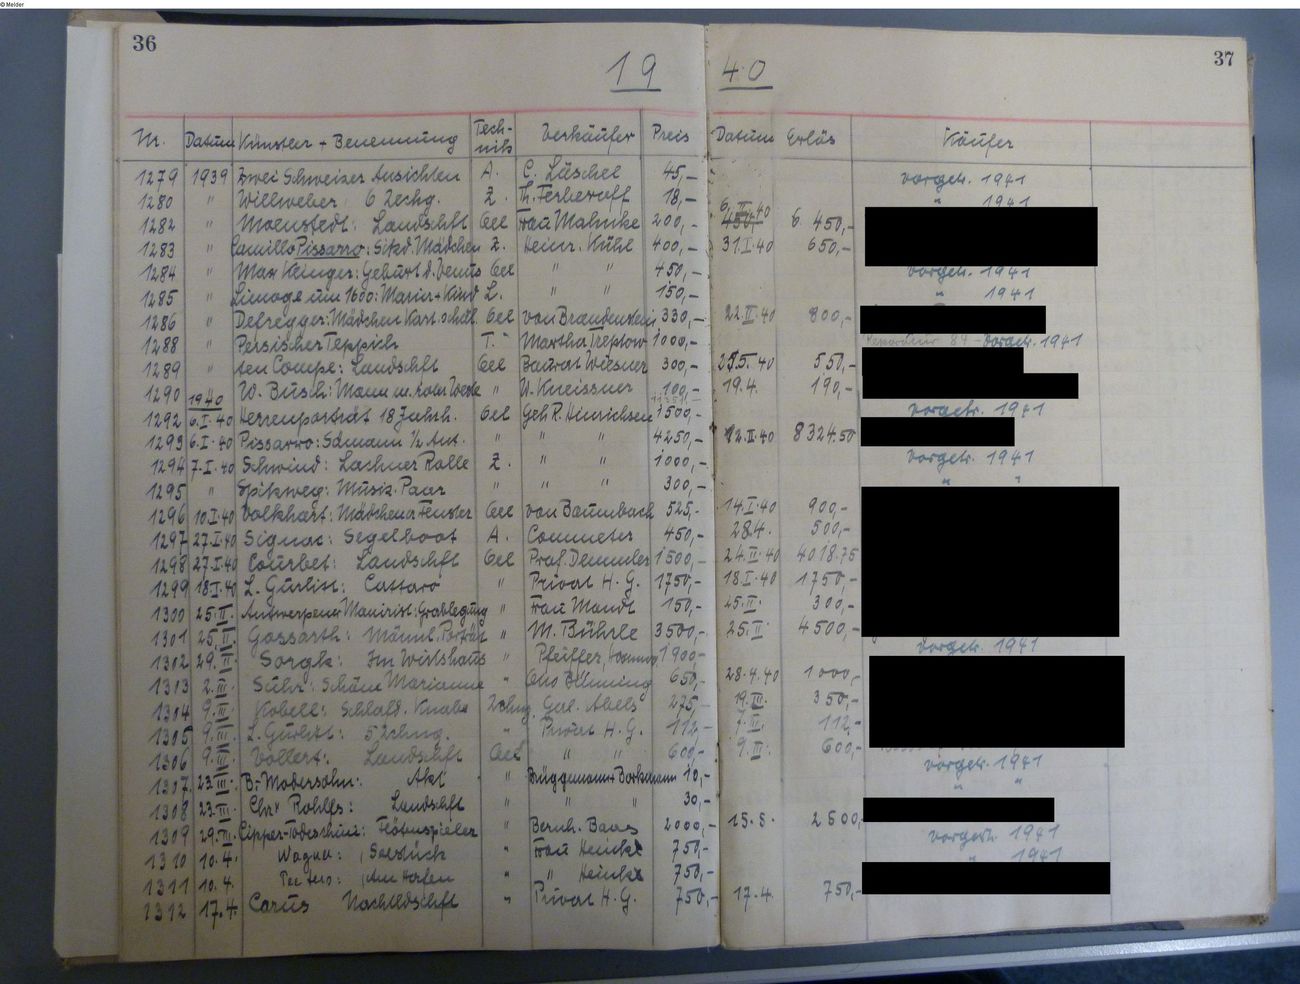 © Melder
36
37
19 40
Nr. Datum Künstler + Benennung Tech-nik Verkäufer Preis Datum Erlös Käufer
1279 1939 Zwei Schweizer Ansichten A. C. Lüschel 45,- vorgetr. 1941
1280 " Willweber: 6 Zchg. Z. Th. Ferberoff 18,- " 1941
1282 " Moenstedt: Landschft Oel Frau Mahnke 200,- 6.II.40 450,- 6. 450,-
1283 " Camillo Pissarro: Sitzd. Mädchen Z. Heinr. Kühl 400,- 31.I.40 650,-
1284 " Max Klinger: Geburt d. Venus Oel " " 450,- vorgetr. 1941
1285 " Limoge um 1600: Maria + Kind L. " " 150,- " 1941
1286 " Defregger: Mädchen Oel von Brandenstein 330,- 22.II.40 800,-
1288 " Persischer Teppich T. Martha Treptow 1000,- vorgetr. 1941
1289 " ten Compe: Landschft Oel Baurat Wiesner 300,- 25.5.40 550,-
1290 " W. Busch: Mann m. roter Weste " W. Kneissner 100,- 19.4. 190,-
1940
1292 6.I.40 Herrenporträt 18 Jahrh. Oel Geh R. Hinrichsen 1500,- vorgetr. 1941
1293 6.I.40 Pissarro: " " " 4250,- 12.II.40 8324.50
1294 7.I.40 Schwind: Lachner Rolle Z. " " 1000,- vorgetr. 1941
1295 " Spitzweg: Musik. Paar " " " 300,- " "
1296 10.I.40 Volkhart: Mädchen a. Fenster Oel von Baumbach 525,- 14.I.40 900,-
1297 27.I.40 Signac: Segelboot A. Commeter 450,- 28.4. 500,-
1298 27.I.40 Courbet: Landschft Oel Prof. Demmler 1500,- 24.II.40 4018.75
1299 18.I.40 L. Gurlitt: Cattaro " Privat H. G. 1750,- 18.I.40 1750,-
1300 25.II. Antwerpener Manirist: Grablegung " Frau Mandt 150,- 25.II. 300,-
1301 25.II. Gossarth: Männl. Porträt " M. Bührle 3500,- 25.II. 4500,-
1302 29.II. Sorgk: Im Wirtshaus " Pfeiffer, 1900,- vorgetr. 1941
1313 2.III. Suhr: Schöne Marianne " Otto Blüming 650,- 28.4.40 1000,-
1304 9.III. Kobell: Schlafd. Knabe Zchng. Gal. Abels 275,- 19.III. 350,-
1305 9.III. L. Gurlitt: 5 Zchng. " Privat H. G. 112,- 7.II. 112,-
1306 9.III. Vollert: Landschft Oel " " 600,- 9.III. 600,-
1307 23.III. B. Modersohn: Akt " Brüggemann + Borkmann 10,- vorgetr. 1941
1308 23.III. Chr. Rohlfs: Landschft " " " 30,- " "
1309 29.III. Cipper-Todeschini: Flötenspieler " Bernh. Baas 2000,- 15.5. 2500,-
1310 10.4. Wagner: Seestück " Frau Heinkel 750,- vorgetr. 1941
1311 10.4. Am Hafen " " Heinkel 750,- " 1941
1312 17.4. Carus Nachtldschft " Privat H. G. 750,- 17.4. 750,-